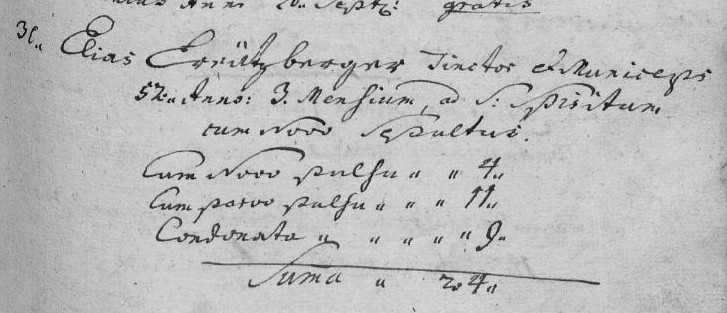 Anni 20. Septr: gratis
30. Elias Creützberger Tinctor et Municeps
52. Anno: 3. Mensium, ad S: Spiritum
cum Novo Sepultus.
Cum Novo pulsu " " 4"
Cum parvo pulsu " " " 11"
Condonata " " " " " 9"
Suma " 24"